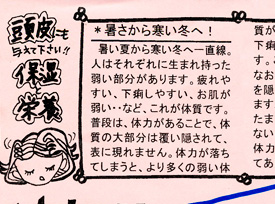 頭皮にも
与えて下さい!!
保湿
と
栄養
*暑さから寒い冬へ!
暑い夏から寒い冬へ一直線。
人はそれぞれに生まれ持った
弱い部分があります。疲れや
すい、下痢しやすい、お肌が
弱い‥など、これが体質です。
普段は、体力があることで、体
質の大部分は覆い隠されて、
表に現れません。体力が落ち
てしまうと、より多くの弱い体
質が
す。
なお
を隠
ます
たま
ない
体力
てあ